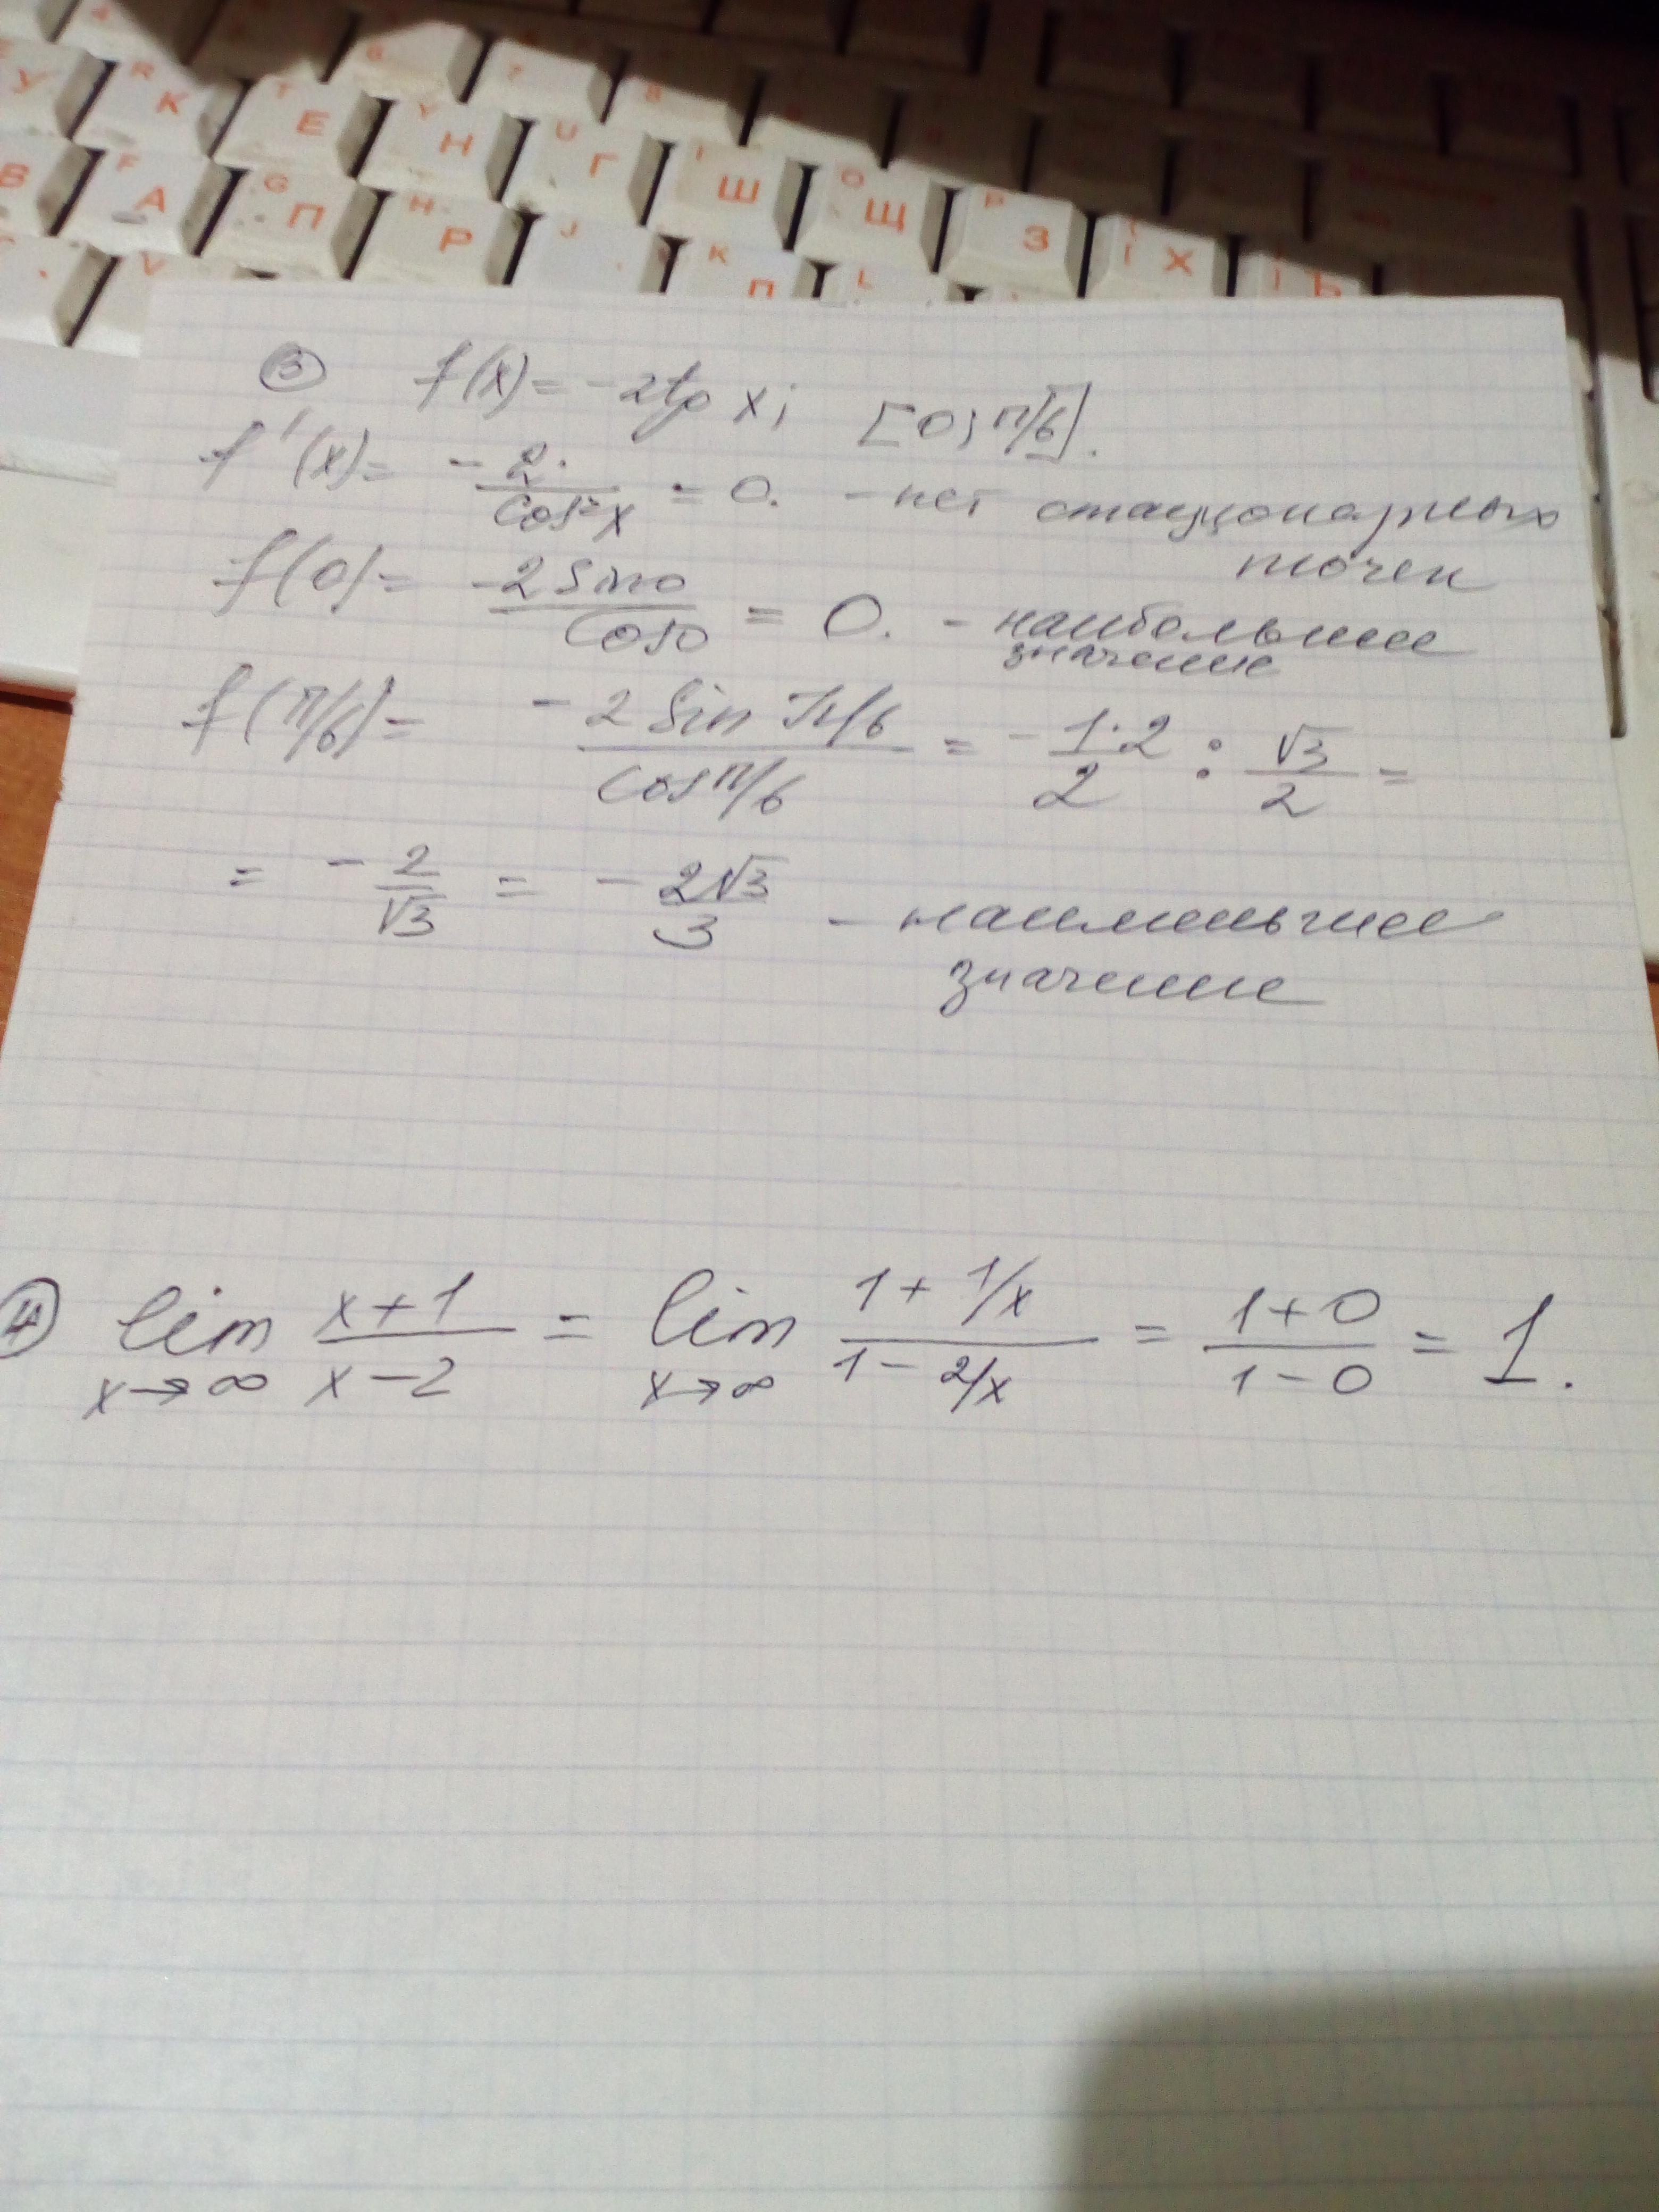 4 6 7 8
У R К T Е Y Н U Г I Ш O Щ P З [ Х ] Ъ
В F А G П H Р J K Л L
V
③ f(x) = -2tg x; [0; π/6].
f'(x) = - 2/cos²x = 0. - нет стационарных
точек
f(0) = -2 sin0/cos0 = 0. - наибольшее
значение
f(π/6) = - 2 sin π/6 / cos π/6 = - 1·2/2 : √3/2 =
= - 2/√3 = - 2√3/3 - наименьшее
значение
④ lim x→∞ (x+1)/(x-2) = lim x→∞ (1 + 1/x)/(1 - 2/x) = (1+0)/(1-0) = 1.